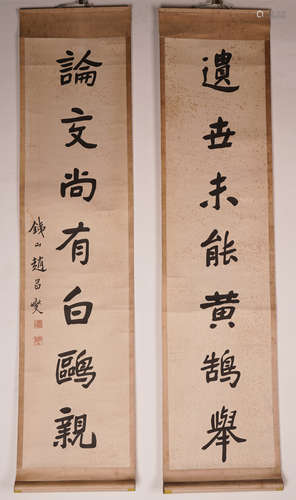 遺世未能黄鵠舉
論文尚有白鷗親
銕山趙昌燮